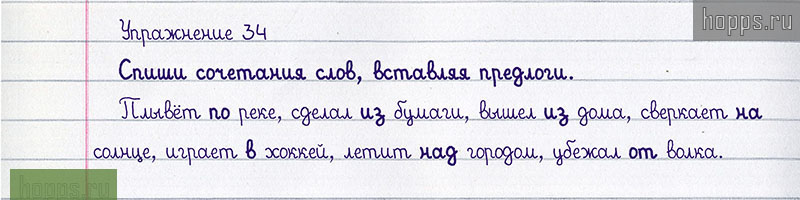 hopps.ru
Упражнение 34
Спиши сочетания слов, вставляя предлоги.
Плывёт по реке, сделал из бумаги, вышел из дома, сверкает на
солнце, играет в хоккей, летит над городом, убежал от волка.
hopps.ru